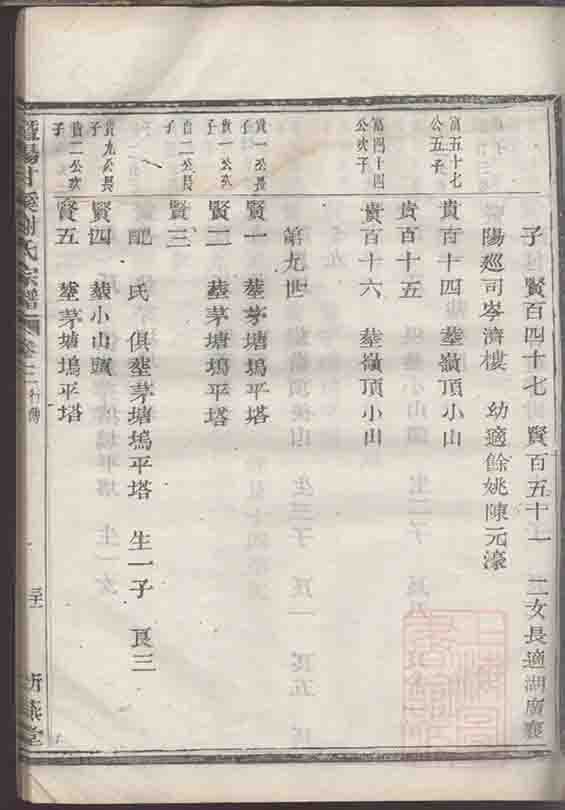 子　賢百四十七　賢百五十一　二女長適湖廣襄
陽廵司岑濟樓　幼適餘姚陳元濠
富五十七
公五子
貴百十四　塟嶺頂小山
貴百十五
富四十四
公次子
貴百十六　塟嶺頂小山
第九世
貴一公長
子
賢一　塟茅塘塢平塔
貴一公次
子
賢二　塟茅塘塢平塔
貴二公長
子
賢三
配　氏　俱塟茅塘塢平塔　生一子　良三
貴九公長
子
賢四　塟小山頭
貴二公次
子
賢五　塟茅塘塢平塔
暨陽甘溪謝氏宗譜　卷二　行傳